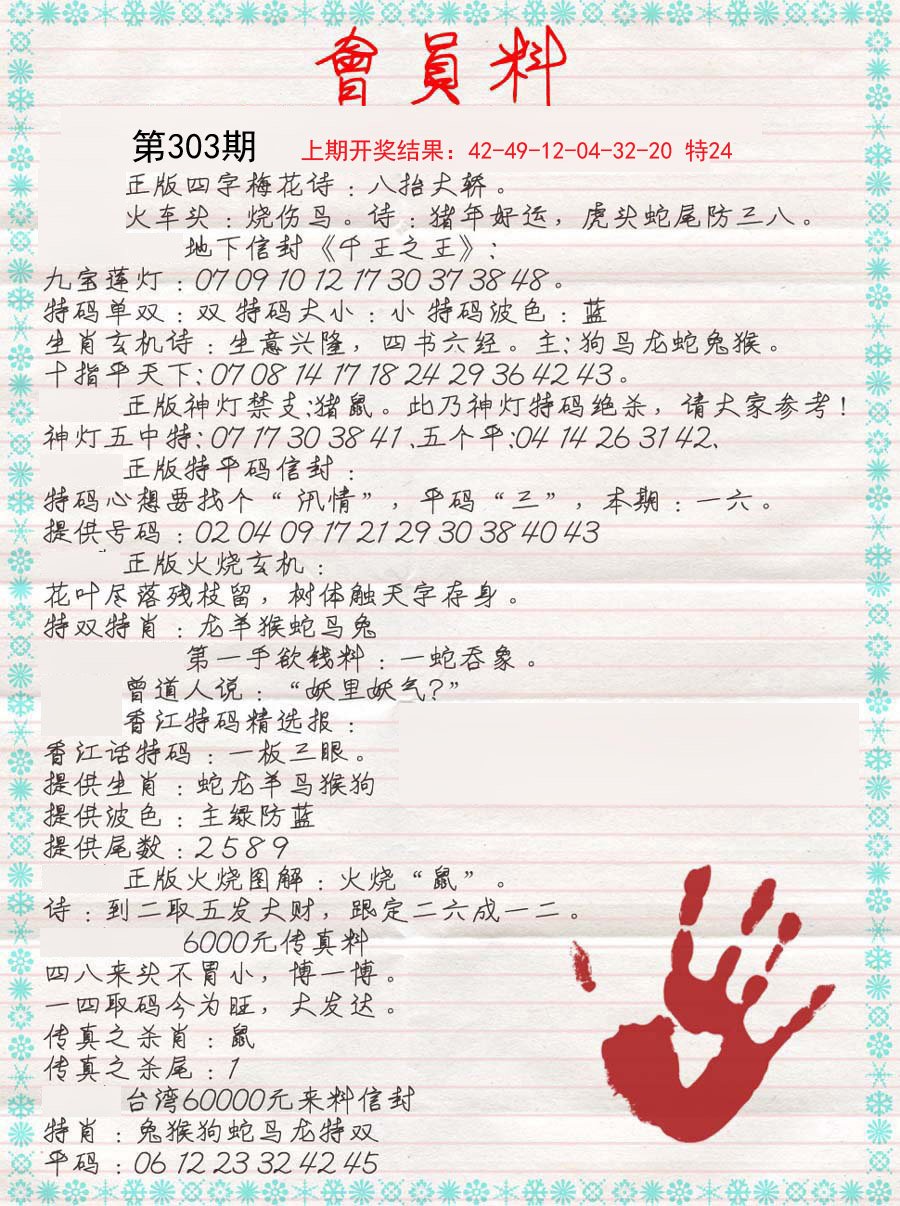 會員料
第303期 上期开奖结果：42-49-12-04-32-20 特24
正版四字梅花诗：八抬大轿。
火车头：烧伤鸟。诗：猪年好运，虎头蛇尾防三八。
地下信封《千王之王》：
九宝莲灯：07 09 10 12 17 30 37 38 48。
特码单双：双 特码大小：小 特码波色：蓝
生肖玄机诗：生意兴隆，四书六经。主：狗鸟龙蛇兔猴。
十指平天下：07 08 14 17 18 24 29 36 42 43。
正版神灯禁支：猪鼠。此乃神灯特码绝杀，请大家参考！
神灯五中特：07 17 30 38 41、五个平：04 14 26 31 42、
正版特平码信封：
特码心想要找个“汛情”，平码“三”，本期：一六。
提供号码：02 04 09 17 21 29 30 38 40 43
正版火烧玄机：
花叶尽落残枝留，树体触天字存身。
特双特肖：龙羊猴蛇鸟兔
第一手欲钱料：一蛇吞象。
曾道人说：“妖里妖气？”
香江特码精选报：
香江话特码：一板三眼。
提供生肖：蛇龙羊鸟猴狗
提供波色：主绿防蓝
提供尾数：2 5 8 9
正版火烧图解：火烧“鼠”。
诗：到二取五发大财，跟定二六成一二。
6000元传真料
四八来头不胃小，博一博。
一四取码今为旺，大发达。
传真之杀肖：鼠
传真之杀尾：1
台湾60000元来料信封
特肖：兔猴狗蛇鸟龙特双
平码：06 12 23 32 42 45